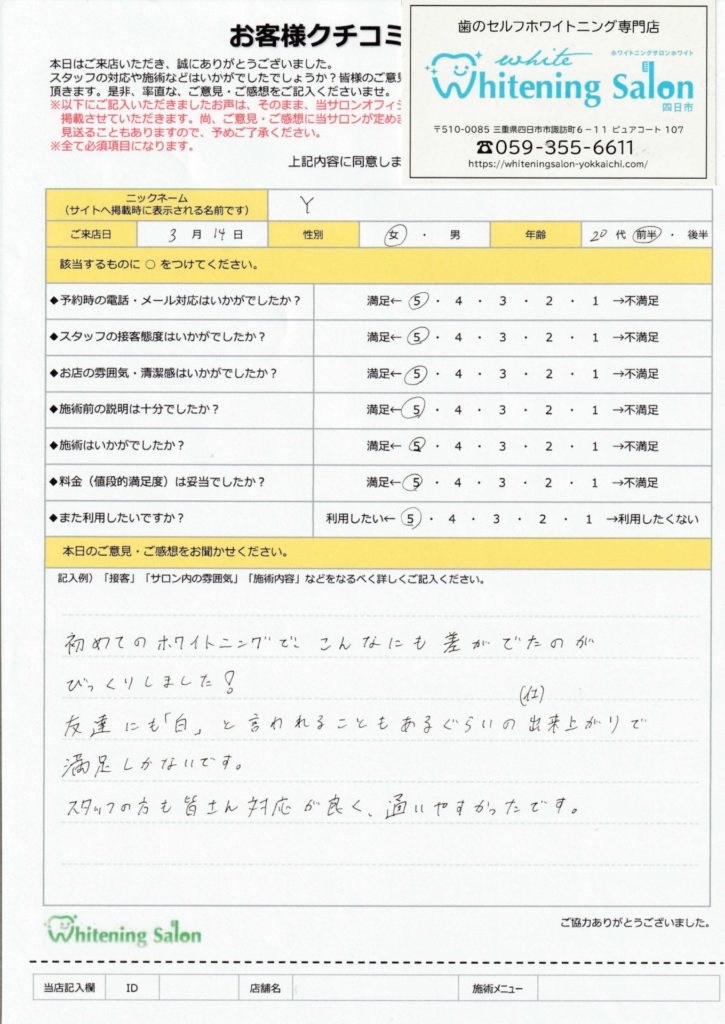 お客様クチコミ
本日はご来店いただき、誠にありがとうございました。
スタッフの対応や施術などはいかがでしたでしょうか？皆様のご意見
頂きます。是非、率直な、ご意見・ご感想をご記入くださいませ。
※以下にご記入いただきましたお声は、そのまま、当サロンオフィシ
掲載させていただきます。尚、ご意見・ご感想に当サロンが定めま
見送ることもありますので、予めご了承ください。
※全て必須項目になります。
上記内容に同意しま
歯のセルフホワイトニング専門店
white
ホワイトニングサロンホワイト
Whitening Salon
四日市
〒510-0085 三重県四日市市諏訪町6-11 ピュアコート 107
☎059-355-6611
https://whiteningsalon-yokkaichi.com/
ニックネーム
（サイトへ掲載時に表示される名前です）
Y
ご来店日 3 月 14 日 性別 女 ・ 男 年齢 20 代 前半 ・ 後半
該当するものに ○ をつけてください。
◆予約時の電話・メール対応はいかがでしたか？ 満足← 5 ・ 4 ・ 3 ・ 2 ・ 1 →不満足
◆スタッフの接客態度はいかがでしたか？ 満足← 5 ・ 4 ・ 3 ・ 2 ・ 1 →不満足
◆お店の雰囲気・清潔感はいかがでしたか？ 満足← 5 ・ 4 ・ 3 ・ 2 ・ 1 →不満足
◆施術前の説明は十分でしたか？ 満足← 5 ・ 4 ・ 3 ・ 2 ・ 1 →不満足
◆施術はいかがでしたか？ 満足← 5 ・ 4 ・ 3 ・ 2 ・ 1 →不満足
◆料金（値段的満足度）は妥当でしたか？ 満足← 5 ・ 4 ・ 3 ・ 2 ・ 1 →不満足
◆また利用したいですか？ 利用したい← 5 ・ 4 ・ 3 ・ 2 ・ 1 →利用したくない
本日のご意見・ご感想をお聞かせください。
記入例）「接客」「サロン内の雰囲気」「施術内容」などをなるべく詳しくご記入ください。
初めてのホワイトニングで、こんなにも差がでたのが
びっくりしました！
友達にも「白」と言われることもあるぐらいの(仕)出来上がりで
満足しかないです。
スタッフの方も皆さん対応が良く、通いやすかったです。
Whitening Salon
ご協力ありがとうございました。
当店記入欄 ID 店舗名 施術メニュー